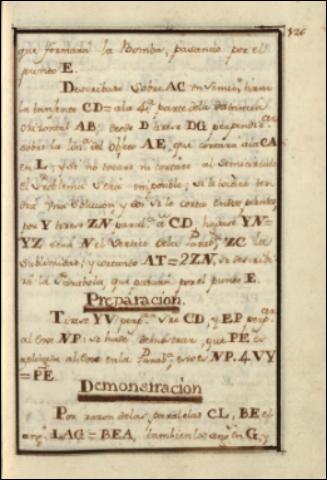 126
que formará la Bomba, pasando por el
punto E.
Describase sobre AC un semicirc.
la tangente CD = ala 4.ª parte dela
Orizontal AB; desde D tirese DG
sobre la del objeto AE, que cortará à la CA
en L; y si no tocare ni cortare al semicirculo
el Problema será imposible; si le tocare ten
drá una solucion y dos si lo corta
por Y tirese ZN paral.ª à CD, hagase YN=
YZ será N el Vertice dela Parab.ª, ZC la
sublimidad; y cortando AT=2ZN, se descri
rá la Parabola, que pasará por el punto E.
Preparacion.
Tirese YV perp.ª sre CD, y EP perp.
al Exe NP: se ha de demonstrar, que PE es
aplicada al Exe en la Parab.ª, esto es NP.4.VY
=PE.
Demonstracion
Por razon delas paralelas CL, BE el
ang. LAG=BEA, tambien los ang. en G, y